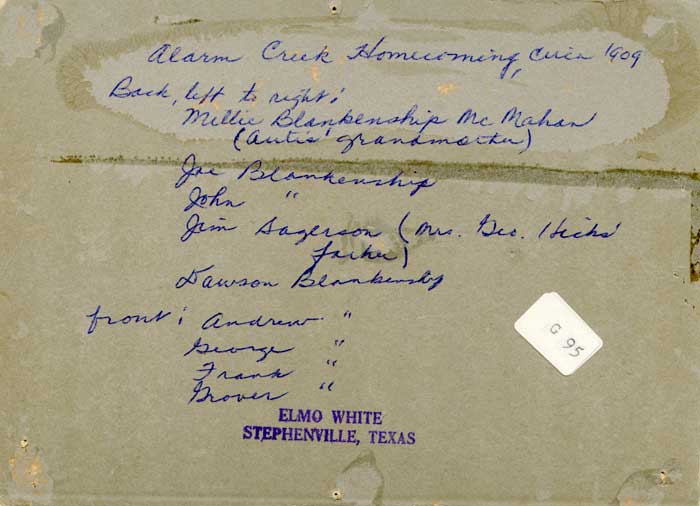 Alarm Creek Homecoming, circa 1909
Back, left to right:
Millie Blankenship McMahan
(Autis' grandmother)
Joe Blankenship
John "
Jim Sagerson (Mrs. Geo. Hicks'
father)
Dawson Blankenship
front: Andrew "
George "
Frank "
Grover "
G 95
ELMO WHITE
STEPHENVILLE, TEXAS